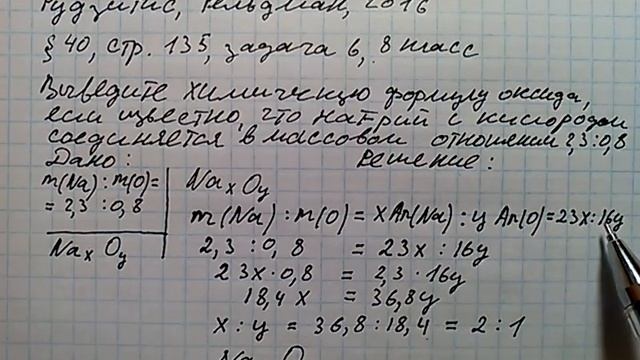 Рудзитис, Фельдман, 2016
§ 40, стр. 135, задача 6, 8 класс
Выведите химическую формулу оксида,
если известно, что натрий с кислородом
соединяется в массовом отношении 2,3:0,8
Дано: Решение:
m(Na) : m(O) =
= 2,3 : 0,8
NaxOy
NaxOy
m(Na) : m(O) = x Ar(Na) : y Ar(O) = 23x:16y
2,3 : 0,8 = 23x : 16y
23x·0,8 = 2,3·16y
18,4x = 36,8y
x : y = 36,8 : 18,4 = 2 : 1